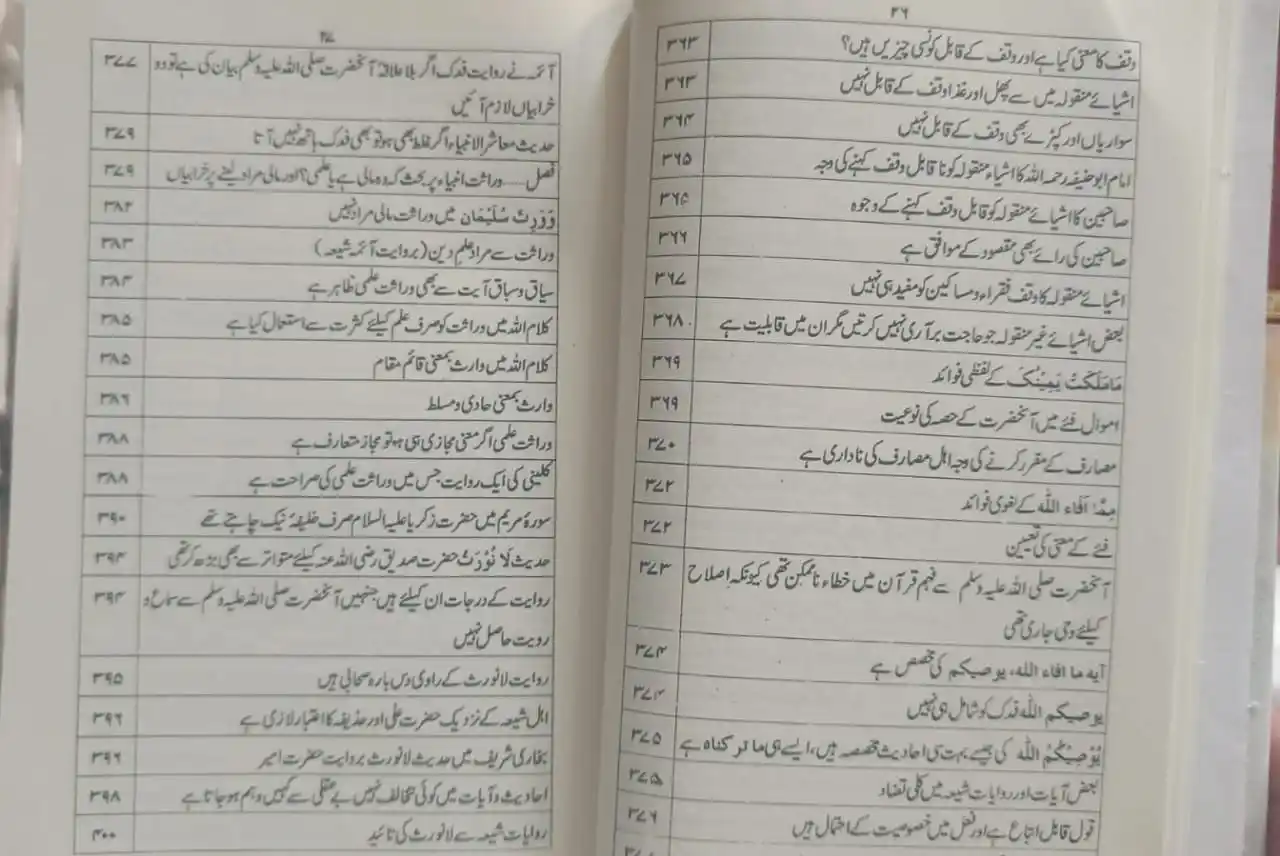 ۳۶
وقف کا معنی کیا ہے اور وقف کے قابل کونسی چیزیں ہیں؟ ۳۶۳
اشیائے منقولہ میں سے پھل اور غذا وقف کے قابل نہیں ۳۶۳
سواریاں اور کپڑے بھی وقف کے قابل نہیں ۳۶۴
امام ابوحنیفہ رحمہ اللہ کا اشیاء منقولہ کو نا قابل وقف کہنے کی وجہ ۳۶۵
صاحبین کا اشیائے منقولہ کو قابل وقف کہنے کے وجوہ ۳۶۵
صاحبین کی رائے بھی مقصود کے موافق ہے ۳۶۶
اشیائے منقولہ کا وقف فقراء و مساکین کو مفید ہی نہیں ۳۶۷
بعض اشیائے غیر منقولہ جو حاجت برآری نہیں کرتیں مگر ان میں قابلیت ہے ۳۶۸
مَا مَلَكَتْ يَمِيْنُكَ کے لفظی فوائد ۳۶۹
اموال فئے میں آنحضرت کے حصہ کی نوعیت ۳۶۹
مصارف کے مقرر کرنے کی وجہ اہل مصارف کی ناداری ہے ۳۷۰
مِمَّا اَفَاء اللّٰه کے لغوی فوائد ۳۷۲
فئے کے معنی کی تعیین ۳۷۲
آنحضرت صلی اللہ علیہ وسلم سے فہم قرآن میں خطاء ناممکن تھی کیونکہ اصلاح ۳۷۳
کیلئے وحی جاری تھی
آیہ ما افاء اللہ، یوصیکم کی مخصص ہے ۳۷۴
یوصیکم اللہ فدک کو شامل ہی نہیں ۳۷۴
يُوْصِيْكُمُ اللّٰه کی جیسے بہت سی احادیث مخصصہ ہیں، ایسے ہی ما ترکناہ ہے ۳۷۵
بعض آیات اور روایات شیعہ میں کلی تضاد ۳۷۵
قول قابل اتباع ہے اور فعل میں خصوصیت کے احتمال ہیں ۳۷۶
۳۷
آئمہ نے روایت فدک اگر بلا علاقہ آنحضرت صلی اللہ علیہ وسلم بیان کی ہے تو دو ۳۷۷
خرابیاں لازم آئیں
حدیث معاشر الانبیاء اگر غلط بھی ہو تو بھی فدک ہاتھ نہیں آتا ۳۷۹
فصل.....وراثت انبیاء پر بحث کہ وہ مالی ہے یا علمی؟ اور مالی مراد لینے پر خرابیاں ۳۷۹
وَوَرِثَ سُلَيْمَان میں وراثت مالی مراد نہیں ۳۸۲
وراثت سے مراد علمِ دین (بروایت آئمہ شیعہ) ۳۸۳
سیاق و سباق آیت سے بھی وراثت علمی ظاہر ہے ۳۸۴
کلام اللہ میں وراثت کو صرف علم کیلئے کثرت سے استعمال کیا ہے ۳۸۵
کلام اللہ میں وارث بمعنی قائم مقام ۳۸۵
وارث بمعنی حاوی و مسلط ۳۸۶
وراثت علمی اگر معنی مجازی ہی ہو تو مجاز متعارف ہے ۳۸۸
کلینی کی ایک روایت جس میں وراثت علمی کی صراحت ہے ۳۸۸
سورۂ مریم میں حضرت زکریا علیہ السلام صرف خلیفۂ نیک چاہتے تھے ۳۹۰
حدیث لَا نُوْرَث حضرت صدیق رضی اللہ عنہ کیلئے متواتر سے بھی بڑھ کر تھی ۳۹۴
روایت کے درجات ان کیلئے ہیں جنہیں آنحضرت صلی اللہ علیہ وسلم سے سماع و ۳۹۴
رویت حاصل نہیں
روایت لانورث کے راوی دس بارہ صحابی ہیں ۳۹۵
اہل شیعہ کے نزدیک حضرت علی اور حذیفہ کا اعتبار لازمی ہے ۳۹۶
بخاری شریف میں حدیث لانورث بروایت حضرت امیر ۳۹۶
احادیث و آیات میں کوئی تخالف نہیں بے عقلی سے کہیں وہم ہو جاتا ہے ۳۹۸
روایات شیعہ سے لانورث کی تائید ۴۰۰